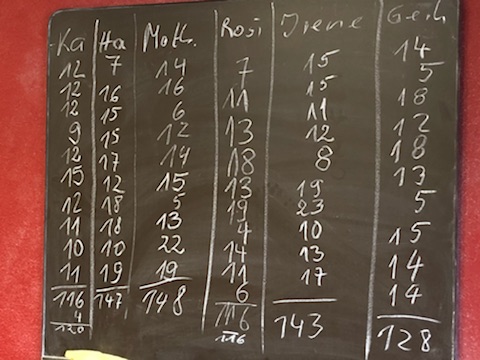 Ka Ha Moth. Rosi Irene Gerh
12 7 14 7 15 14
12 16 16 11 15 5
12 15 6 13 11 18
9 15 12 18 12 12
12 17 14 13 8 18
15 12 15 19 19 13
12 18 5 4 23 5
11 18 13 14 10 15
10 10 22 11 13 14
11 19 19 6 17 14
116 147 148 116 143 128
4
120 116